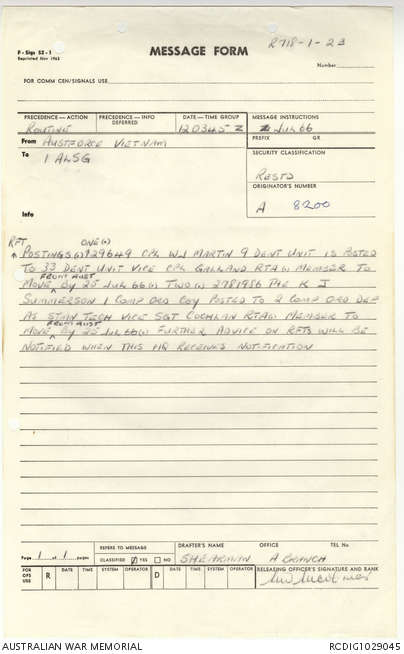 R718-1-23
F - Sigs 52 - 1
Reprinted Nov 1965
MESSAGE FORM
Number
FOR COMM CEN/SIGNALS USE
PRECEDENCE — ACTION
PRECEDENCE — INFO DEFERRED
DATE — TIME GROUP
MESSAGE INSTRUCTIONS
ROUTINE
120345 Z
JUL 66
From AUSTFORCE VIETNAM
PREFIX GR
To 1 ALSG
SECURITY CLASSIFICATION
RESTD
ORIGINATOR'S NUMBER
Info
A 8200
RFT ONE(.)
POSTINGS(.) 129649 CPL WJ MARTIN 9 DENT UNIT IS POSTED
TO 33 DENT UNIT VICE CPL GALLAND RTA(.) MEMBER TO
FROM AUST
MOVE BY 25 JUL 66(.) TWO(.) 2781956 PTE K J
SUMMERSON 1 COMP ORD COY POSTED TO 2 COMP ORD DEP
AS STMN TECH VICE SGT COCHLAN RTA(.) MEMBER TO
FROM AUST
MOVE BY 25 JUL 66(.) FURTHER ADVICE ON RFTS WILL BE
NOTIFIED WHEN THIS HQ RECEIVES NOTIFICATION
Page 1 of 1 pages
REFERS TO MESSAGE
CLASSIFIED YES NO
DRAFTER'S NAME OFFICE TEL No
SHEARMAN A BRANCH
FOR OPS USE
R DATE TIME SYSTEM OPERATOR
D DATE TIME SYSTEM OPERATOR
RELEASING OFFICER'S SIGNATURE & RANK
AUSTRALIAN WAR MEMORIAL
RCDIG1029045